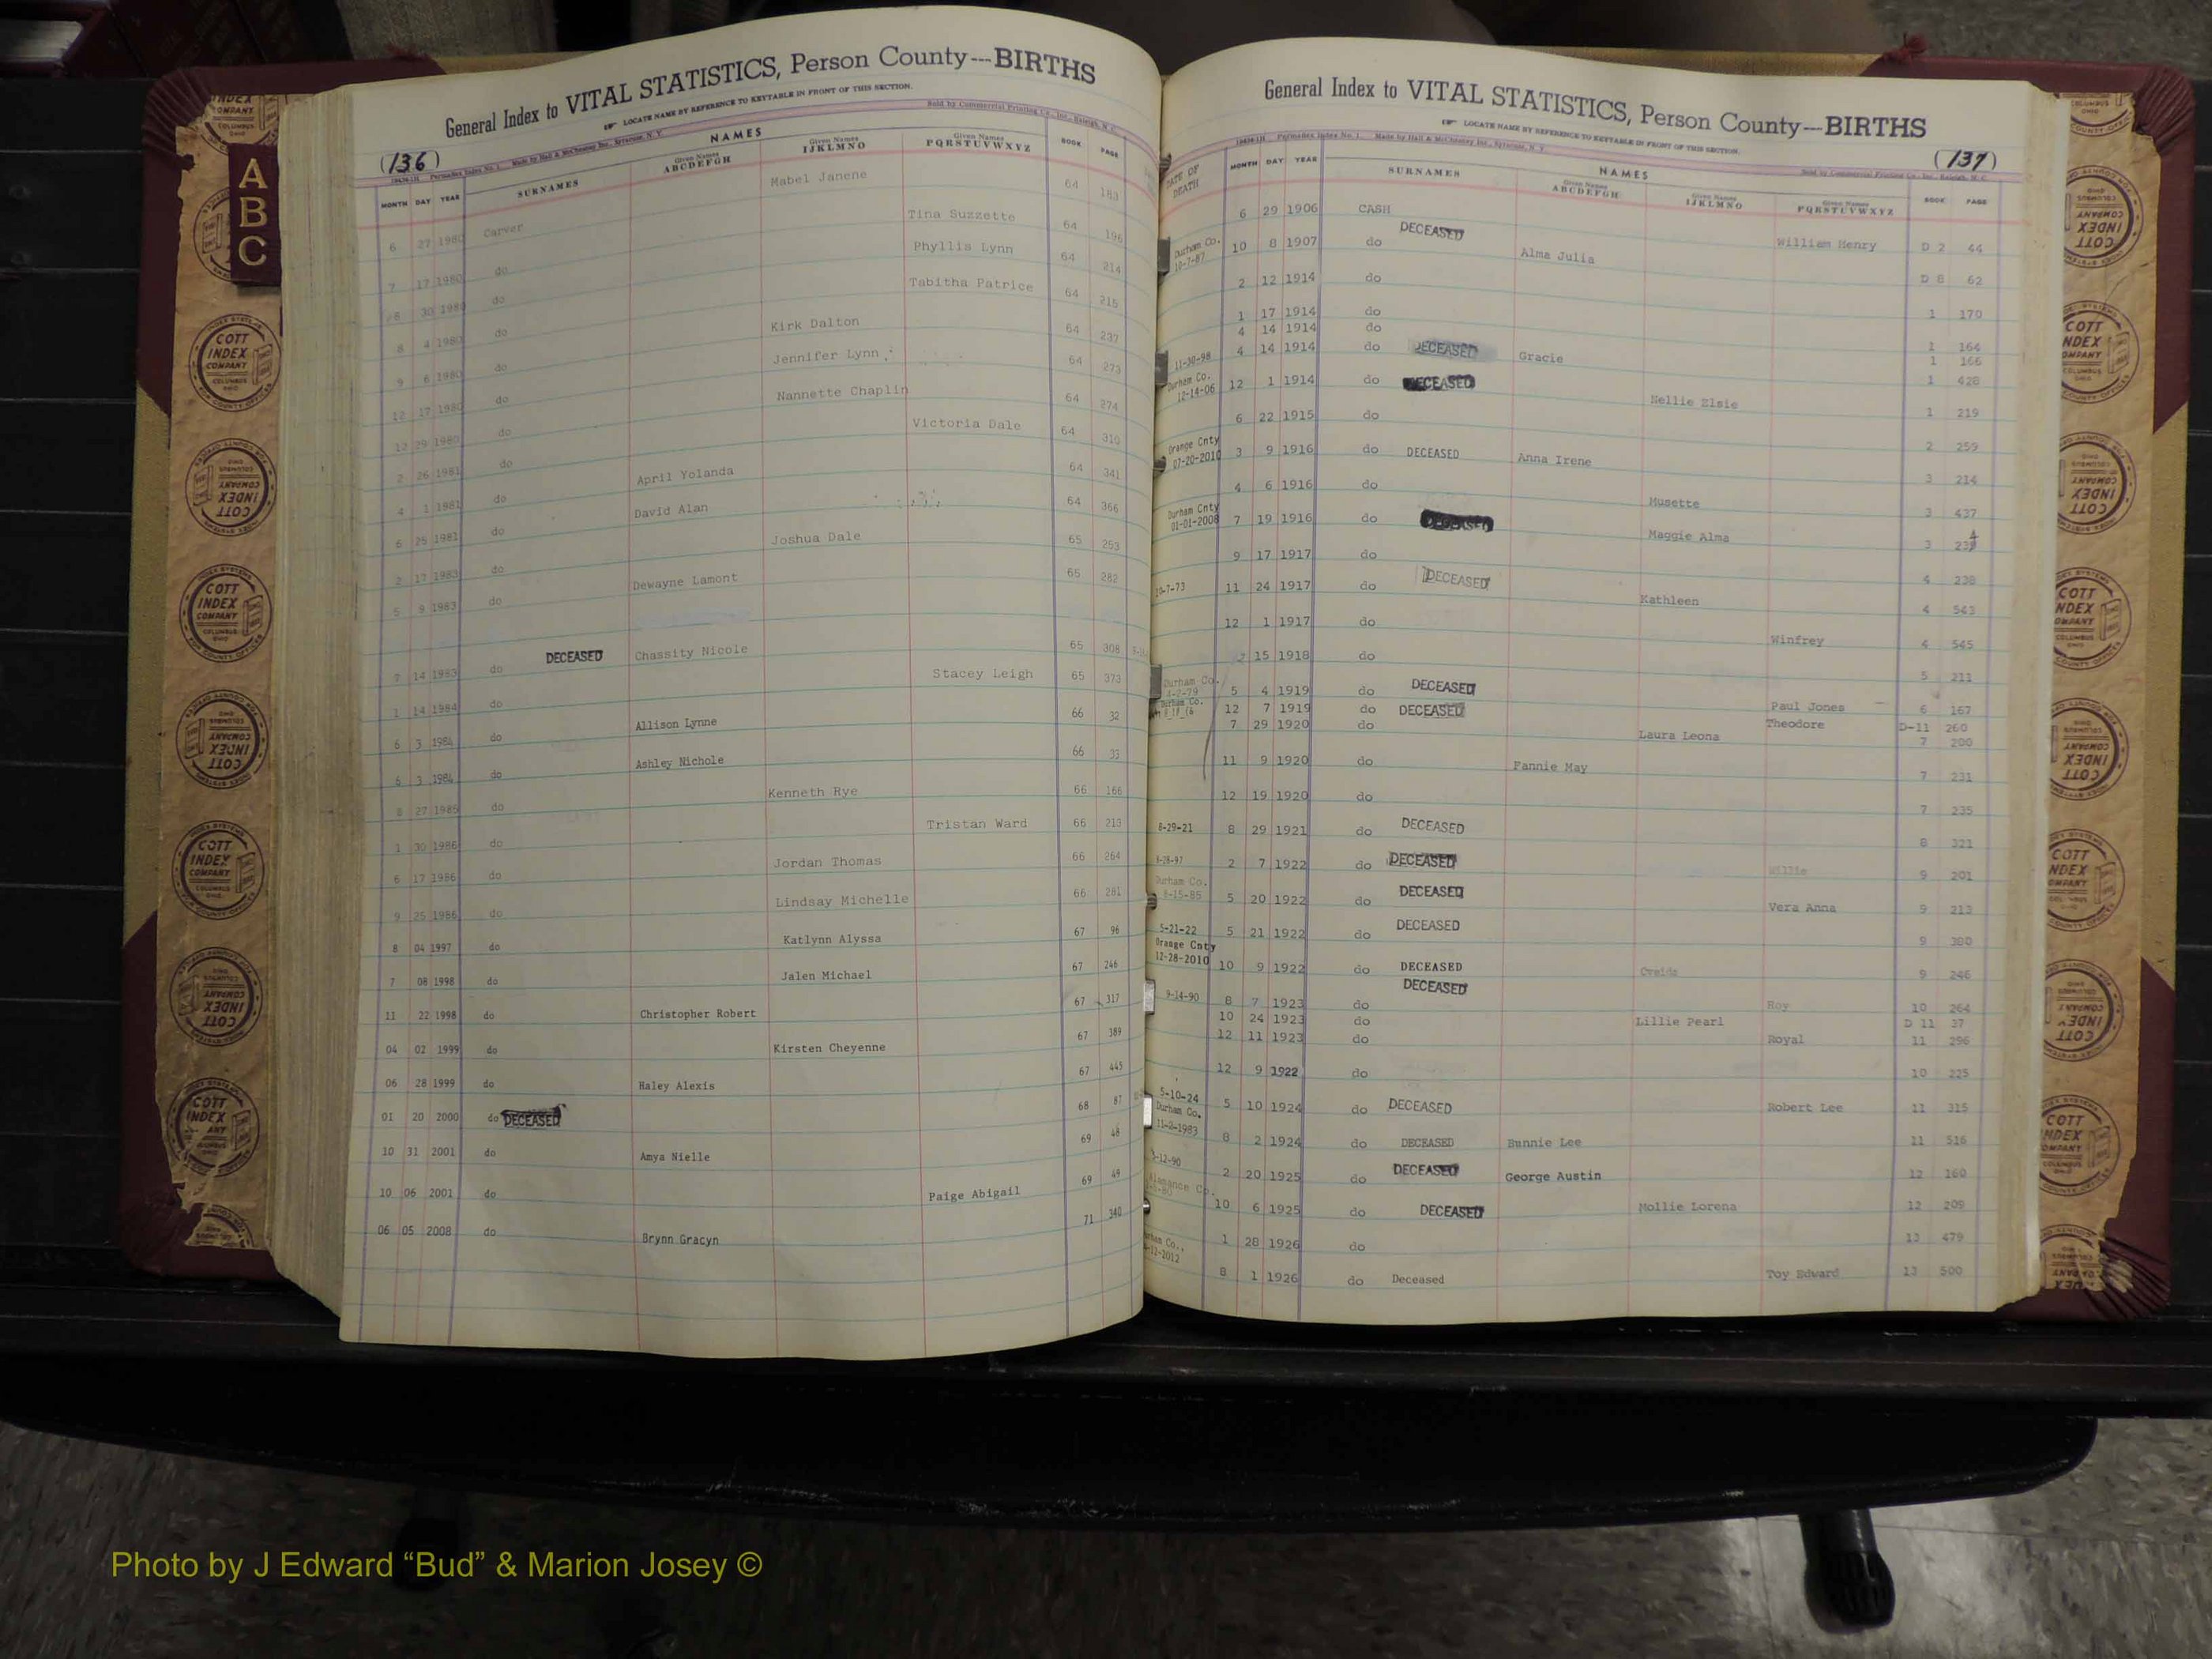 General Index to VITAL STATISTICS, Person County---BIRTHS
LOCATE NAME BY REFERENCE TO KEYTABLE IN FRONT OF THIS SECTION.
(136)
A
B
C
NAMES
MONTH DAY YEAR SURNAMES Given Names ABCDEFGH Given Names IJKLMNO Given Names PQRSTUVWXYZ BOOK PAGE
6 27 1980 Carver Mabel Janene 64 183
7 17 1980 do Tina Suzzette 64 196
8 30 1980 do Phyllis Lynn 64 214
8 4 1980 do Tabitha Patrice 64 215
9 6 1980 do Kirk Dalton 64 237
12 17 1980 do Jennifer Lynn 64 273
12 29 1980 do Nannette Chaplin 64 274
2 26 1981 do Victoria Dale 64 310
4 1 1981 do April Yolanda 64 341
6 25 1981 do David Alan 64 366
2 17 1983 do Joshua Dale 65 253
5 9 1983 do Dewayne Lamont 65 282
7 14 1983 do DECEASED Chassity Nicole 65 308
1 14 1984 do Stacey Leigh 65 373
6 3 1984 do Allison Lynne 66 32
6 3 1984 do Ashley Nichole 66 33
8 27 1985 do Kenneth Rye 66 166
1 30 1986 do Tristan Ward 66 213
6 17 1986 do Jordan Thomas 66 264
9 25 1986 do Lindsay Michelle 66 281
8 04 1997 do Katlynn Alyssa 67 96
7 08 1998 do Jalen Michael 67 246
11 22 1998 do Christopher Robert 67 317
04 02 1999 do Kirsten Cheyenne 67 389
06 28 1999 do Haley Alexis 67 445
01 20 2000 do DECEASED 68 87
10 31 2001 do Amya Nielle 69 48
10 06 2001 do Paige Abigail 69 49
06 05 2008 do Brynn Gracyn 71 340
General Index to VITAL STATISTICS, Person County---BIRTHS
LOCATE NAME BY REFERENCE TO KEYTABLE IN FRONT OF THIS SECTION.
(137)
NAMES
DATE OF DEATH MONTH DAY YEAR SURNAMES Given Names ABCDEFGH Given Names IJKLMNO Given Names PQRSTUVWXYZ BOOK PAGE
6 29 1906 CASH William Henry D 2 44
Durham Co. 10-7-87 10 8 1907 do DECEASED Alma Julia D 8 62
2 12 1914 do 1 170
1 17 1914 do 1 164
4 14 1914 do 1 166
11-30-98 4 14 1914 do DECEASED Gracie 1 428
Durham Co. 12-14-06 12 1 1914 do DECEASED Nellie Elsie 1 219
6 22 1915 do 2 259
Orange Cnty 07-20-2010 3 9 1916 do DECEASED Anna Irene 3 214
4 6 1916 do Musette 3 437
Durham Cnty 01-01-2008 7 19 1916 do DECEASED Maggie Alma 3 234
9 17 1917 do 4 238
11 24 1917 do DECEASED Kathleen 4 543
12 1 1917 do Winfrey 4 545
15 1918 do 5 211
Durham Co. 4-2-79 5 4 1919 do DECEASED Paul Jones 6 167
Durham Co. 12 7 1919 do DECEASED Theodore D-11 260
7 29 1920 do Laura Leona 7 200
11 9 1920 do Fannie May 7 231
12 19 1920 do 7 235
8-29-21 8 29 1921 do DECEASED 8 321
2 7 1922 do DECEASED Willie 9 201
Durham Co. 8-15-85 5 20 1922 do DECEASED Vera Anna 9 213
5-21-22 5 21 1922 do DECEASED 9 380
Orange Cnty 12-28-2010 10 9 1922 do DECEASED 9 246
9-14-90 8 7 1923 do DECEASED Roy 10 264
10 24 1923 do Lillie Pearl D 11 37
12 11 1923 do Royal 11 296
12 9 1922 do 10 225
5-10-24 5 10 1924 do DECEASED Robert Lee 11 315
Durham Co. 11-2-1983 8 2 1924 do DECEASED Bunnie Lee 11 516
2 20 1925 do DECEASED George Austin 12 160
Alamance Co. 10 6 1925 do DECEASED Mollie Lorena 12 209
1 28 1926 do 13 479
8 1 1926 do Deceased Toy Edward 13 500
COTT INDEX COMPANY
COLUMBUS OHIO
Photo by J Edward “Bud” & Marion Josey ©